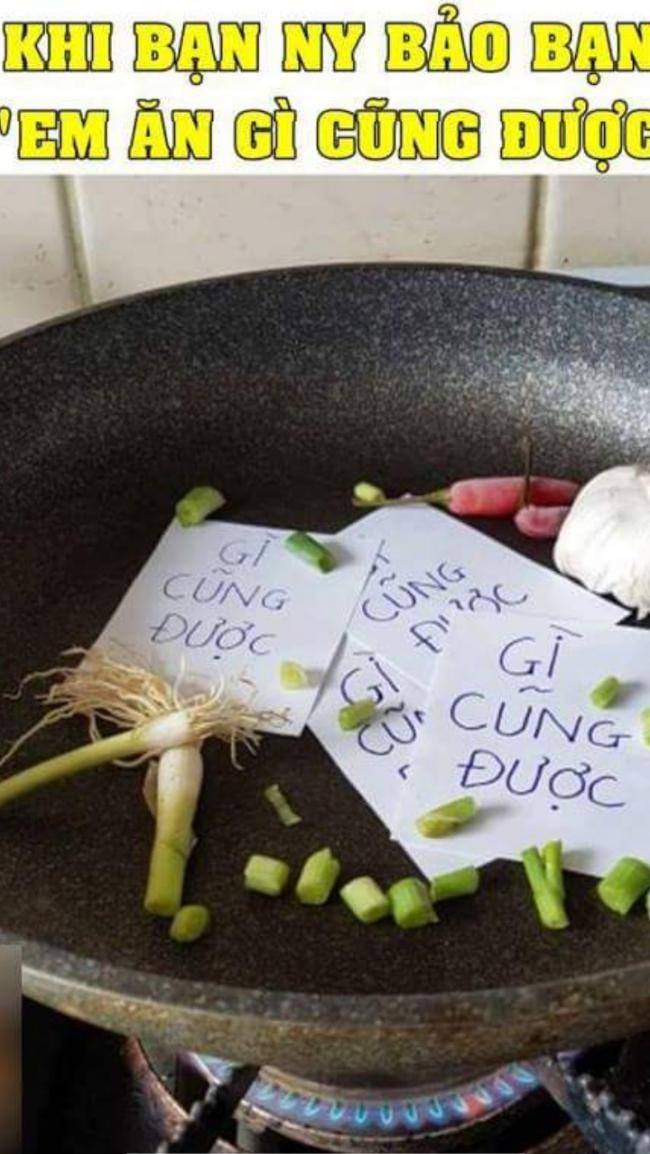 KHI BẠN NY BẢO BẠN
"EM ĂN GÌ CŨNG ĐƯỢC
GÌ
CŨNG
ĐƯỢC
CŨNG
ĐƯỢC
GÌ
CŨNG
GÌ
CŨNG
ĐƯỢC